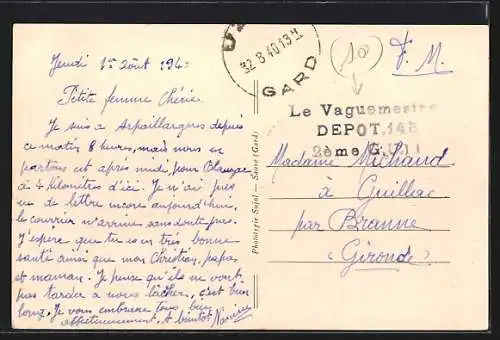 Jeudi 1er Août 194
Petite femme Chérie.
Je suis a Arpaillargues depuis
ce matin 8 heures, mais nous en
partons cet après midi pour
à 4 Kilomètres d'ici. Je n'ai pas
eu de lettre encore aujourd'hui,
le courrier n'arrive sans doute pas.
J'espère que tu es en très bonne
santé ainsi que mon Christian, papa
et maman. Je pense qu'ils ne vont
pas tarder a nous lâcher, c'est bien
long. Je vous embrasse tous bien
affectueusement. A bientôt
Phototypie Sujol — (Gard)
GARD
10
F. M.
Le Vaguemestre
DEPOT 145
2ème
Madame Michaud
à Guillac
par Branne
(Gironde)